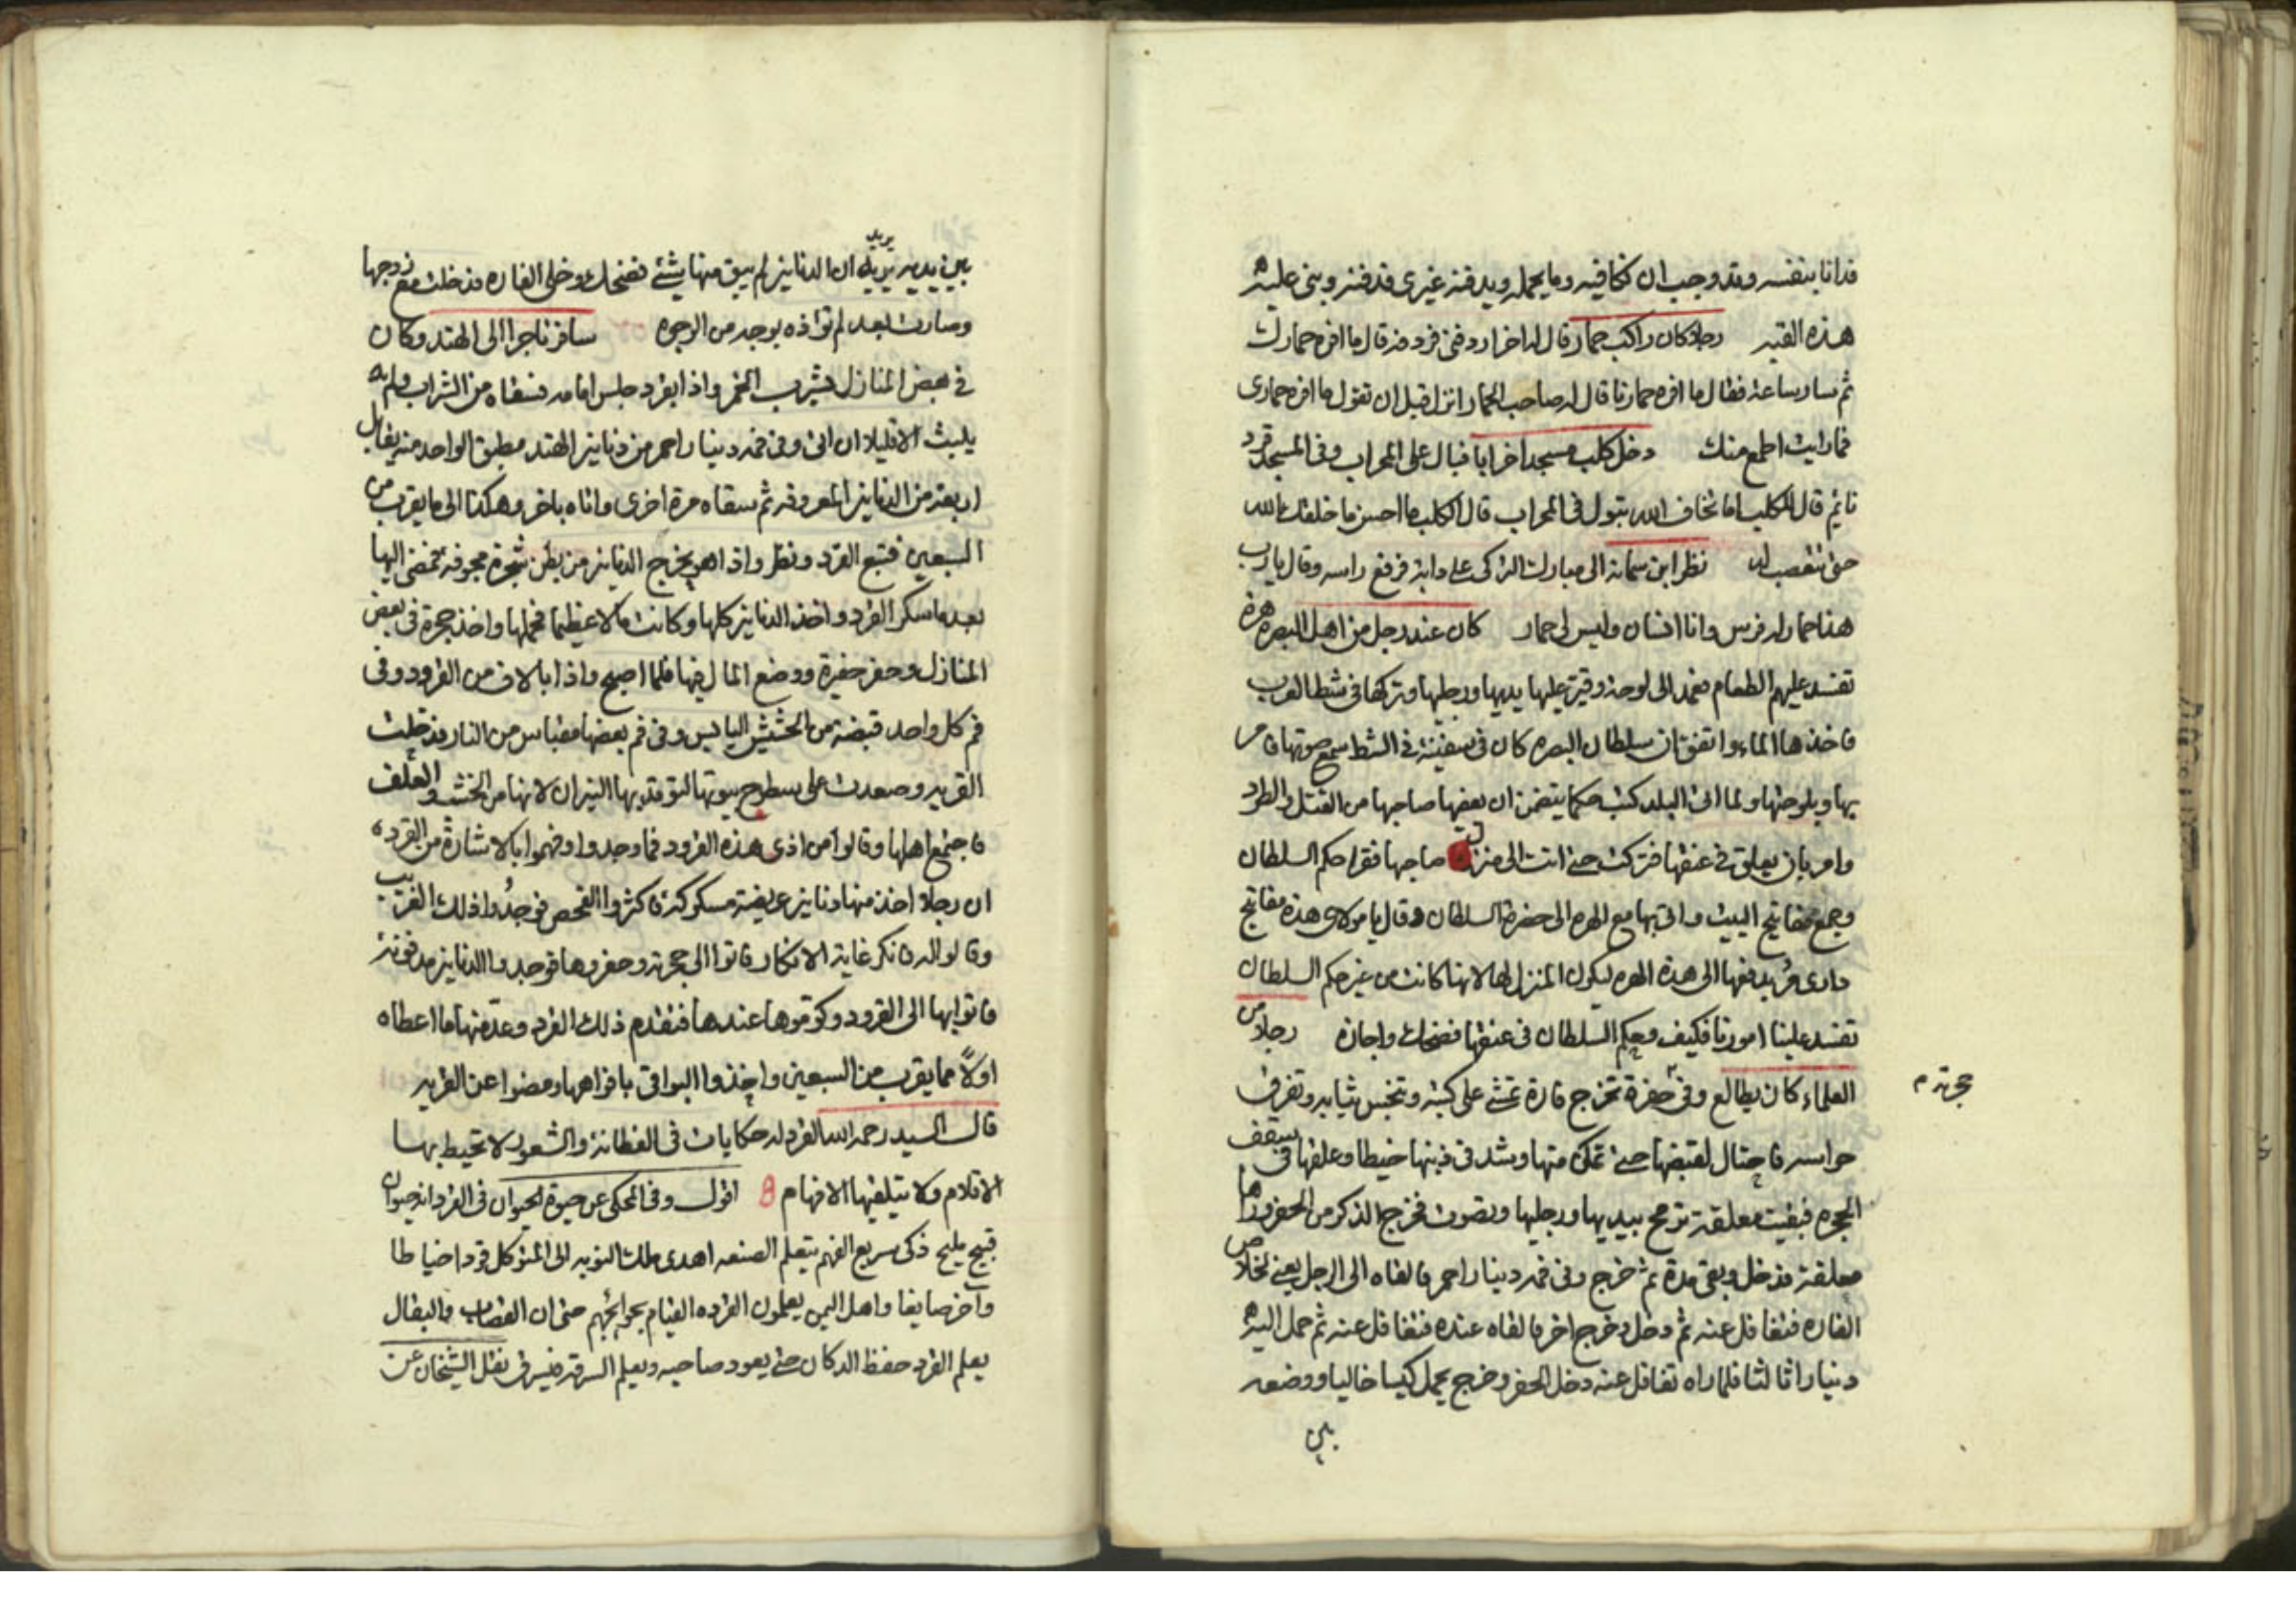 فدانا بنفسه وقد وجب ان نكافيه وما يحمله ويدفنه غيرى فدفنته وبنى عليه
هذه القبه رجلا كان راكب حمار قال له اخر اردفنى فردفه قال ما افره حمارك
ثم سار ساعة فقال ما افره حمارنا قال له صاحب الحمار انزل قبل ان تقول ما افره حمارى
فما رايت اطمع منك دخل كلب مسجدا خرابا فبال على المحراب وفى المسجد قرد
نائم قال للكلب اما تخاف الله تبول فى المحراب قال الكلب ما احسن ما خلقك الله
حتى تتعصب له نظر ابن سمانة الى مبارك التركى على دابة فرفع راسه وقال يارب
هذا حمار له فرس وانا انسان وليس لى حمار كان عند رجل من اهل البصره هرة
تفسد عليهم الطعام فعمد الى لوحة وقير عليها يديها ورجليها وتركها فى شط العرب
فاخذها الماء واتفق ان سلطان البصره كان فى سفينة فى الشط سمع صوتها فامر
بها وبلوحتها ولما اتى البلد كتب حكما يتضمن ان يعفيها صاحبها من القتل والطرد
وامر بان يعلق فى عنقها فتركت حتى اتت الى منزل صاحبها فقرا حكم السلطان
وجمع مفاتيح البيت واتى بها مع الهره الى حضرة السلطان وقال يا مولاى هذه مفاتيح
دارى فريد دفعها الى هذه الهره ليكون المنزل لها لانها كانت من غير حكم السلطان
تفسد علينا امورنا فكيف وحكم السلطان فى عنقها فضحك واجازه رجلا من
العلماء كان يطالع وفى حفرة تخرج فارة تمشى على كتبه وتنجس ثيابه وتفرق
حجرته م
حواسه فاحتال لقبضها حتى تمكن منها وشد فى ذنبها خيطا وعلقها فى سقف
الحجره فبقيت معلقة ترمح بيديها ورجليها وتصوت فخرج الذكر من الحفر وراها
معلقة فدخل وبقى مدة ثم خرج وفى فمه دينار احمر فالقاه الى الرجل يعنى لخلاص
الفاره فتغافل عنه ثم دخل وخرج اخر فالقاه عنده فتغافل عنه ثم حمل اليه
دينارا ثالثا فلما راه تغافل عنه دخل الحفر وخرج يحمل كيسا خاليا ووضعه
بين
بين يديه يريد ان الدنانير لم يبق منها شئ فضحك وخلى الفاره فدخلت مع زوجها
وصارت بعد لم تؤاذه بوجه من الوجوه سافر تاجر الى الهند وكان
فى بعض المنازل يشرب الخمر واذا بقرد جلس امامه فسقاه من الشراب ولم
يلبث الا قليلا ان اتى وفى فمه دينارا احمر من دنانير الهند مطبق الواحد منه يقابل
اربعة من الدنانير المعروفه ثم سقاه مرة اخرى واتاه باخر وهكذا الى ما يقرب من
السبعين فتبع القرد ونظر واذا هو يخرج الدنانير من بطن شجرة مجوفة فمضى اليها
بعد ما سكر القرد واخذ الدنانير كلها وكانت مالا عظيما فحملها واخذ حجرة فى بعض
المنازل وحفر حفيرة ووضع المال فيها فلما اصبح واذا بالاف من القرود وفى
فم كل واحد قبضة من الحشيش اليابس وفى فم بعضها مقباس من النار فدخلت
القريه وصعدت على سطوح بيوتها لتوقد بها النيران لانها من الخشب والعلف
فاجتمع اهلها وقالوا من اذى هذه القرود فما وجدوا وفهموا بالاشارة من القرده
ان رجلا اخذ منها دنانير عريضة مسكوكة فاكثروا الفحص فوجدوا ذلك الغريب
وقالوا له فانكر غاية الانكار فاتوا الى حجرته وحفروها فوجدوا الدنانير مدفونة
فاتوا بها الى القرود وكوموها عندها فتقدم ذلك القرد وعد منها ما اعطاه
اولاً مما يقرب من السبعين واخذوا البواقى بافواهها ومضوا عن القريه
قال السيد رحمه الله القرد له حكايات فى الفطانة والشعور لا تحيط بها
الاقلام ولا يتلقيها الافهام اقول وفى المحكى عن حيوة الحيوان فى القرد انه حيوان
قبيح مليح ذكى سريع الفهم يتعلم الصنعه اهدى ملك النوبه الى المتوكل قردا خياطا
واخر صايغا واهل اليمن يعلمون القرده القيام بحوائجهم حتى ان القصاب والبقال
يعلم القرد حفظ الدكان حتى يعود صاحبه ويعلم السرقه فيسرق نقل الشيخان عن